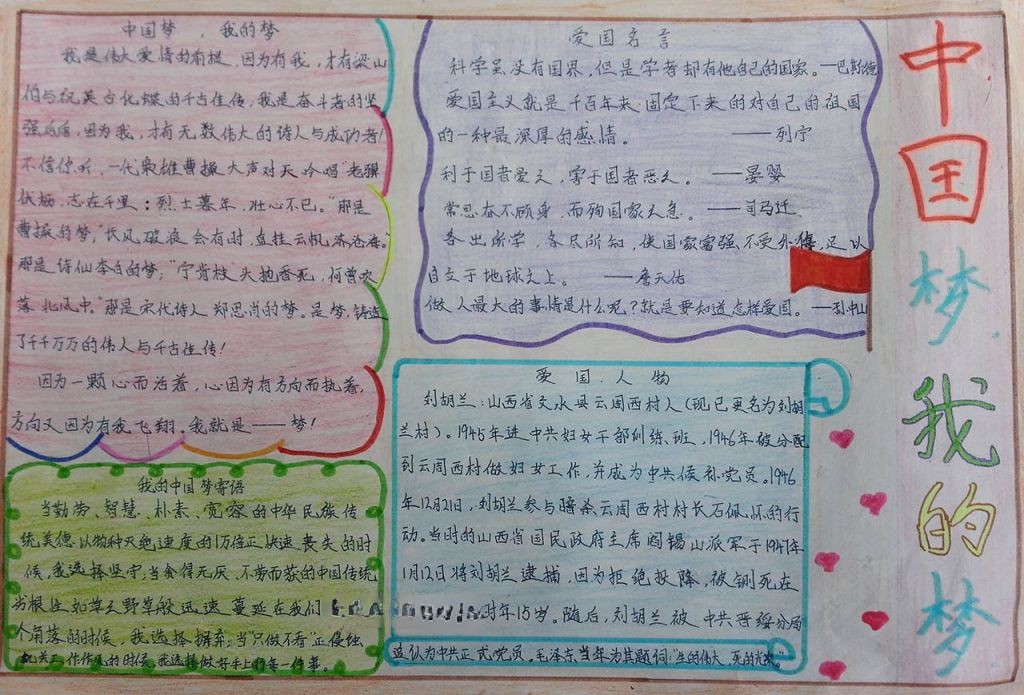 中国梦，我的梦
我是伟大爱情的前提，因为有我，才有梁山
伯与祝英台化蝶的千古佳传，我是奋斗者的坚
强后盾，因为我，才有无数伟大的诗人与成功者！
不信你听，一代枭雄曹操大声对天吟唱“老骥
伏枥，志在千里：烈士暮年，壮心不已。”那是
曹操的梦，“长风破浪会有时，直挂云帆济沧海。”
那是诗仙李白的梦；“宁肯枝头抱香死，何曾吹
落北风中。”那是宋代诗人郑思尚的梦。是梦，铸造
了千千万万的伟人与千古佳传！
因为一颗心而活着，心因为有方向而执着，
方向又因为有我飞翔。我就是——梦！
我的中国梦寄语
当勤劳、智慧、朴素、宽容的中华民族传
统美德以物种灭绝速度的1万倍正快速丧失的时
候，我选择坚守；当贪得无厌、不劳而获的中国传统
劣根性如草之野草般迅速蔓延在我们
个角落的时候，我选择摒弃；当“只做不看”正侵蚀
机关工作作风的时候，我选择做好手上的每一件事。
爱国名言
科学虽没有国界，但是学者却有他自己的国家。—巴斯德
爱国主义就是千百年来固定下来的对自己的祖国
的一种最深厚的感情。——列宁
利于国者爱之，害于国者恶之。——晏婴
常思奋不顾身，而殉国家之急。——司马迁
各出所学，各尽所知，使国家富强不受外侮，足以
自立于地球之上。——詹天佑
做人最大的事情是什么呢？就是要知道怎样爱国。——孙中山
爱国人物
刘胡兰：山西省文水县云周西村人（现已更名为刘胡
兰村）。1945年进中共妇女干部训练班，1946年被分配
到云周西村做妇女工作，并成为中共候补党员。1946
年12月21日，刘胡兰参与暗杀云周西村村长石佩怀的行
动。当时的山西省国民政府主席阎锡山派军于1947年
1月12日将刘胡兰逮捕，因为拒绝投降，被铡死在
时年15岁。随后，刘胡兰被中共晋绥分局
追认为中共正式党员。毛泽东当年为其题词：“生的伟大，死的光荣”
中国梦我的梦